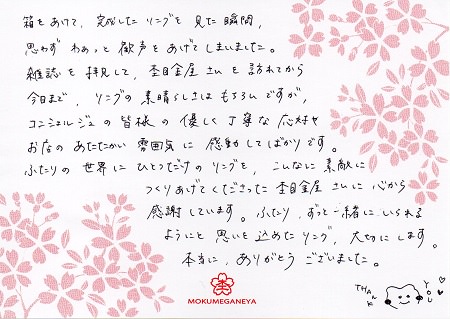 箱をあけて、完成したリングを見た瞬間、
思わずわぁっと歓声をあげてしまいました。
雑誌を拝見して、杢目金屋さんを訪れてから
今日まで、リングの素晴らしさはもちろんですが、
コンシェルジュの皆様の優しく丁寧な応対や
お店のあたたかい雰囲気に感動してばかりです。
ふたりの世界にひとつだけのリングを、こんなに素敵に
つくりあげてくださった杢目金屋さんに心から
感謝しています。ふたり、ずっと一緒にいられる
ようにと思いを込めたリング、大切にします。
本当に、ありがとうございました。
THANK YOU
杢
MOKUMEGANEYA